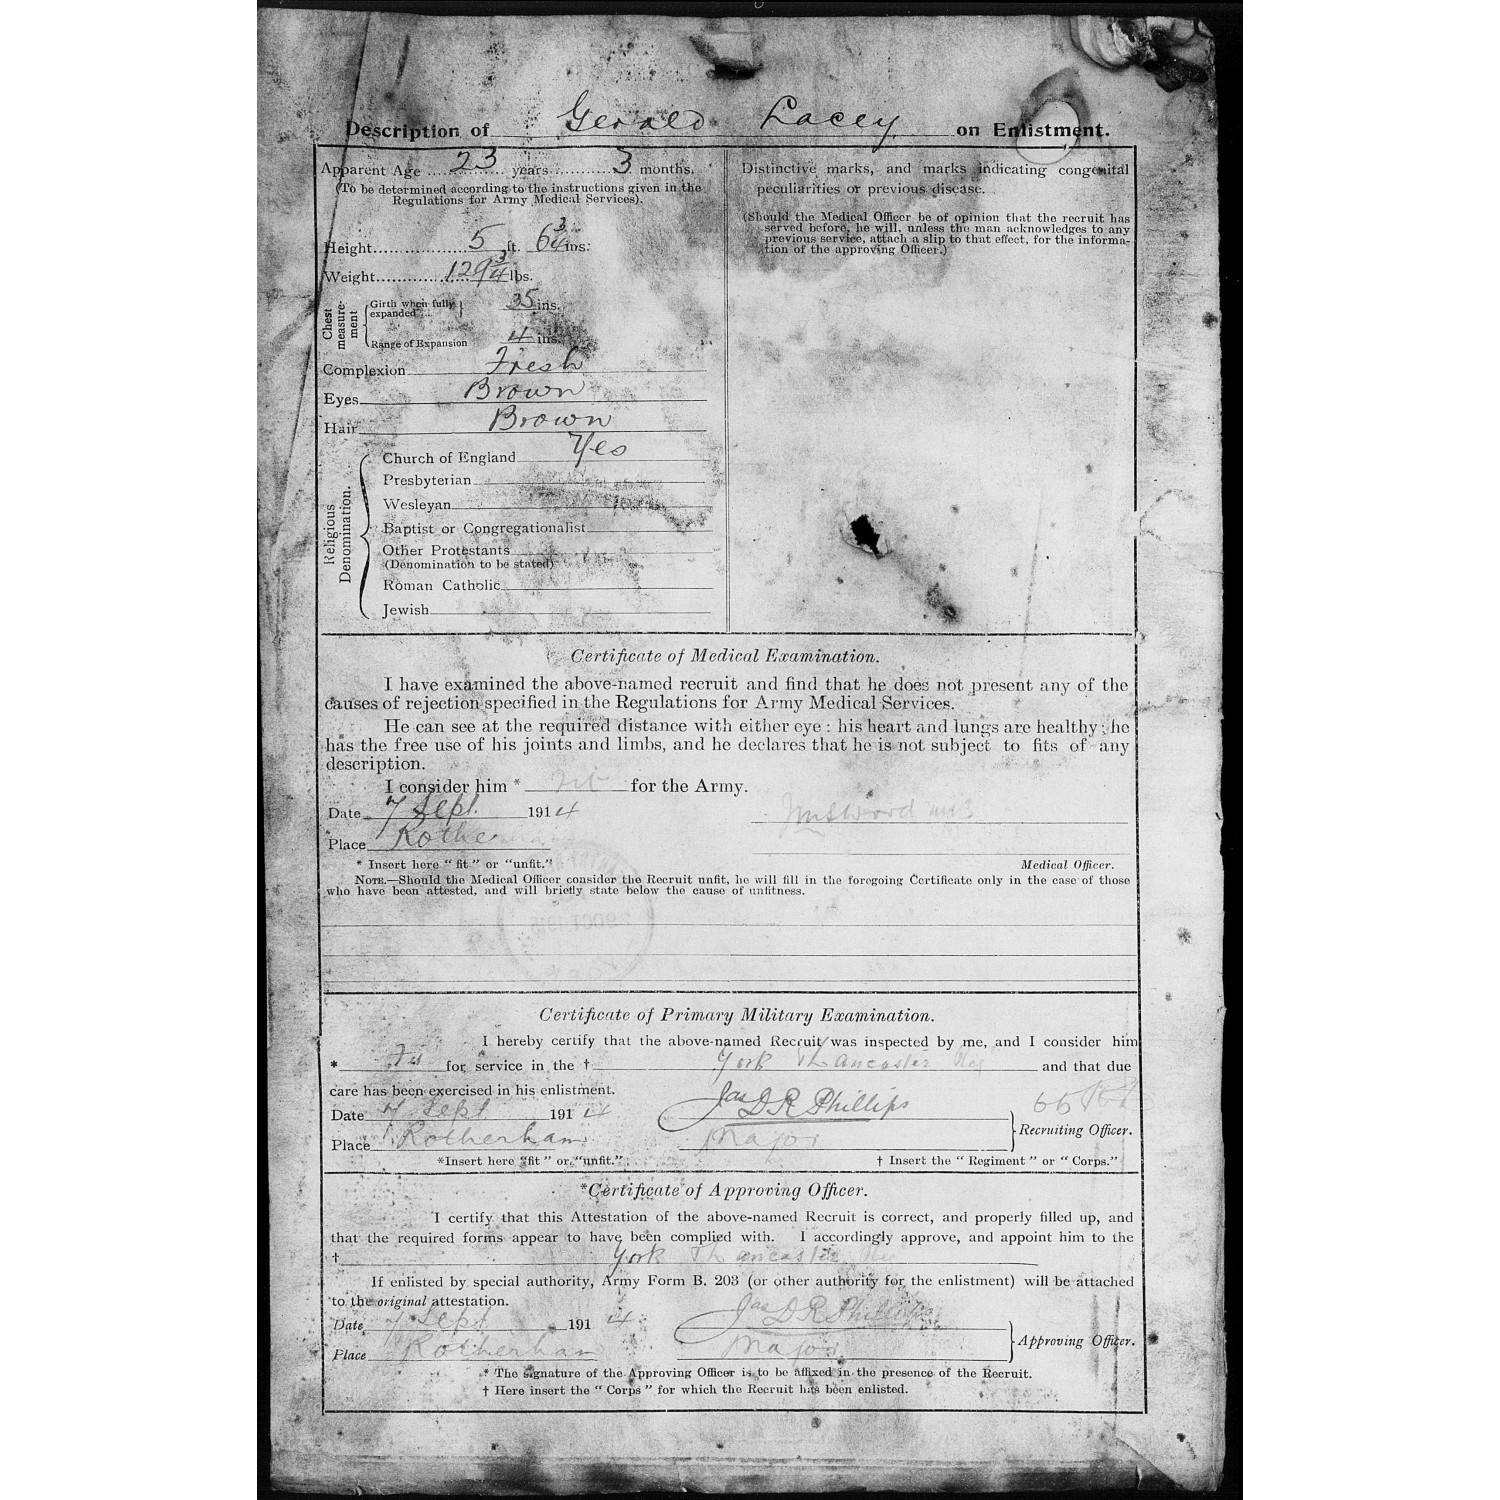 Description of Gerald Lacey on Enlistment.
Apparent Age 23 years 3 months.
(To be determined according to the instructions given in the
Regulations for Army Medical Services).
Height 5 ft. 6 3/4 ins.
Weight 129 3/4 lbs.
Chest measure-ment
Girth when fully expanded 35 ins.
Range of Expansion 4 ins.
Complexion Fresh
Eyes Brown
Hair Brown
Religious Denomination.
Church of England Yes
Presbyterian
Wesleyan
Baptist or Congregationalist
Other Protestants
(Denomination to be stated)
Roman Catholic
Jewish
Distinctive marks, and marks indicating congenital
peculiarities or previous disease.
(Should the Medical Officer be of opinion that the recruit has
served before, he will, unless the man acknowledges to any
previous service, attach a slip to that effect, for the informa-
tion of the approving Officer.)
Certificate of Medical Examination.
I have examined the above-named recruit and find that he does not present any of the
causes of rejection specified in the Regulations for Army Medical Services.
He can see at the required distance with either eye : his heart and lungs are healthy ; he
has the free use of his joints and limbs, and he declares that he is not subject to fits of any
description.
I consider him * fit for the Army.
Date 7 Sept 1914
Place Rotherham
Medical Officer.
* Insert here "fit" or "unfit."
NOTE.—Should the Medical Officer consider the Recruit unfit, he will fill in the foregoing Certificate only in the case of those
who have been attested, and will briefly state below the cause of unfitness.
Certificate of Primary Military Examination.
I hereby certify that the above-named Recruit was inspected by me, and I consider him
* Fit for service in the † York & Lancaster Reg and that due
care has been exercised in his enlistment.
Date 7 Sept 1914 Jas D R Phillips
Place Rotherham Major Recruiting Officer.
*Insert here "fit" or "unfit." † Insert the "Regiment" or "Corps."
*Certificate of Approving Officer.
I certify that this Attestation of the above-named Recruit is correct, and properly filled up, and
that the required forms appear to have been complied with. I accordingly approve, and appoint him to the
† York & Lancaster Reg
If enlisted by special authority, Army Form B. 203 (or other authority for the enlistment) will be attached
to the original attestation.
Date 7 Sept 1914 Jas D R Phillips
Place Rotherham Major Approving Officer.
* The signature of the Approving Officer is to be affixed in the presence of the Recruit.
† Here insert the "Corps" for which the Recruit has been enlisted.